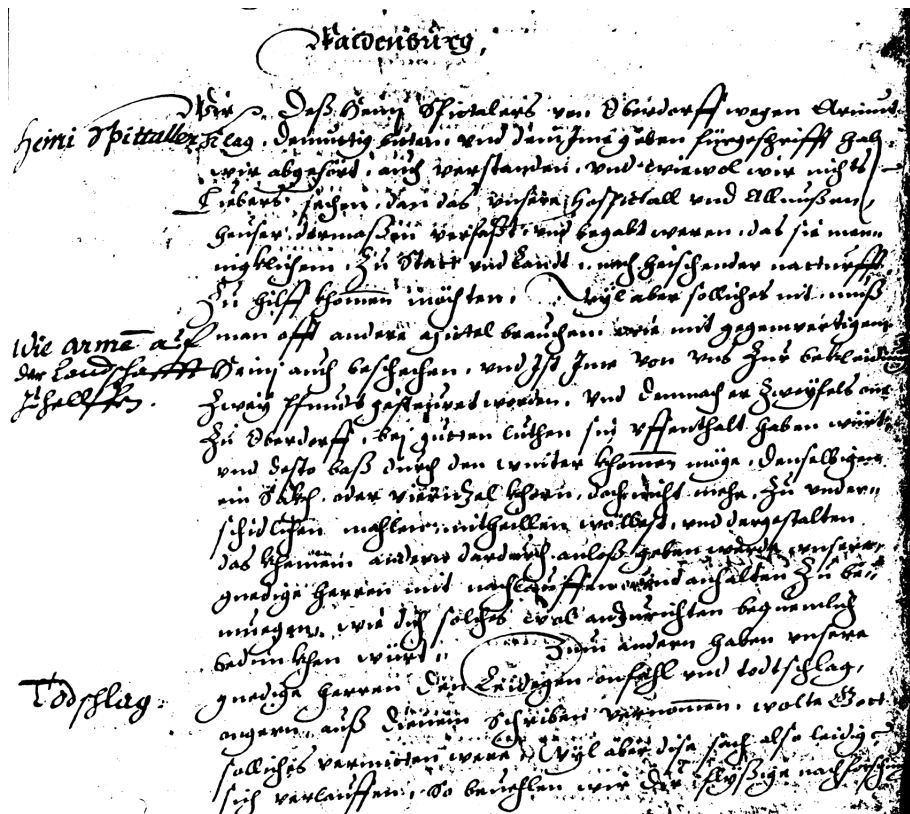 Waldenburg,
Wir Deß Heinj Spittalers von Oberdorff wegen Armut
Heini Spittallers
klag, demuetig bitten, vnd dem Ime geben fürgeschrifft hab
wir abgehört, auch verstanden, vnd wiewol wir nichts
Liebers sächen, dan das vnsere Hospitall vnd Allmußen
heuser dermaßen verfaßt, vnd begabt weren, das sie men-
nigklichem, Zu Statt vnd Landt, nach heischender notturfft
Zu hilff khomen möchten, Wyl aber solliches nit, muß
wie armē auf
der Landschafft
Zuhelffen.
man offt andere mittel brauchen, wie mit gegenwertigem
Heinj auch beschechen, vnd Ist Ime von vns Zur bekleidung
Zwey Pfundt gesteüret worden, Vnd demnach er Zweyfels one
Zu Oberdorff, bej gutten lüthen sin vffenthalt haben würt,
vnd desto baß durch den winter khomen möge, denselbigen
ein Sackh, oder vierntzel khorn, doch nicht mehr, Zu vnder-
schidlichen mahlen mittheillen wöllest, vnd dergestalten
das kheinem andern dardurch anlaß geben werde, vnsere
gnedige Herren mit nachlauffen vnd anhalten Zu be-
muegen, wie dich solches wol anzurichten bequemlich
bedunckhen würt. Zum andern haben vnsere
Todschlag.
gnedige Herren den Leidigen onfahl vnd todtschlag,
ongern, auß deinem Schriben vernommen, wolte Gott
solliches vermitten were, Wyl aber dise sach also leidig
sich verlauffen, So beuehlen wir dir flyßige nachforschung